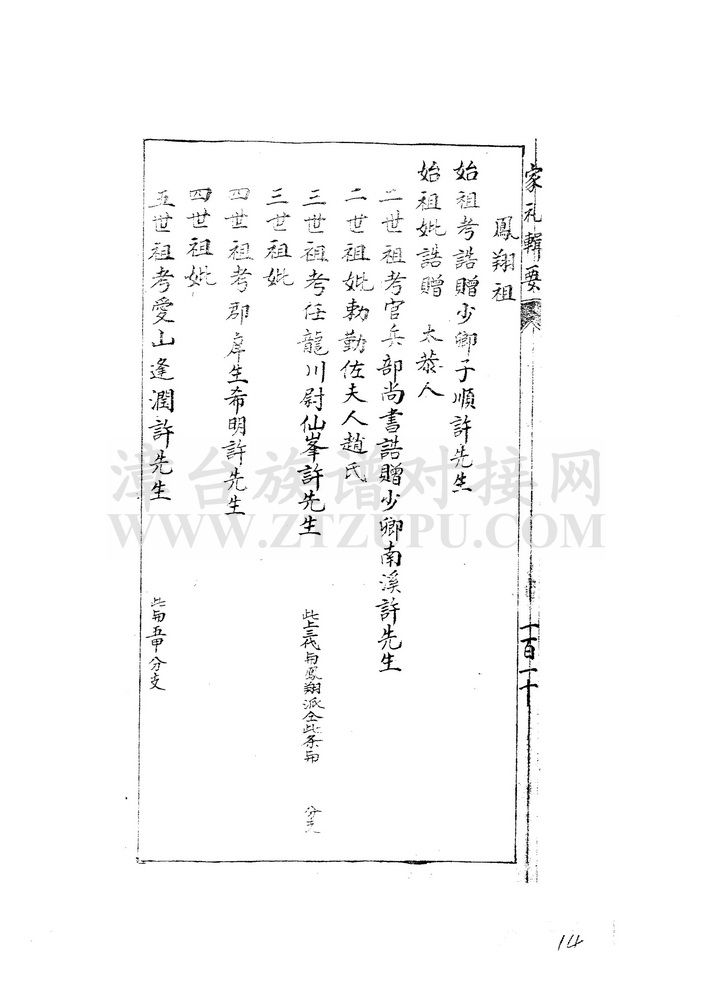 家礼輯要
一百一十
鳳翔祖
始祖考誥贈少卿子順許先生
始祖妣誥贈 太恭人
二世祖考官兵部尚書誥贈少卿南溪許先生
二世祖妣勅勤佐夫人趙氏
三世祖考任龍川尉仙峯許先生
此上三代与鳳翔派仝此系与 分支
三世祖妣
四世祖考郡庠生希明許先生
四世祖妣
五世祖考愛山逢潤許先生
此与五甲分支
漳台族谱对接网
WWW.ZTZUPU.COM
14